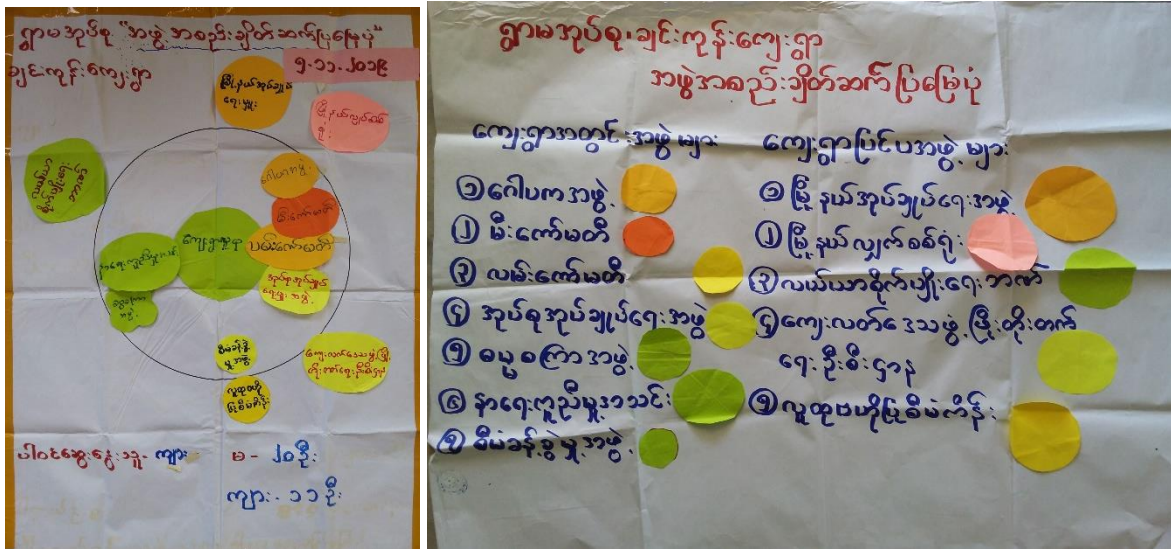 ရွာမအုပ်စု "အဖွဲ့အစည်းချိတ်ဆက်ပြမြေပုံ"
ချင်းကုန်းကျေးရွာ
၅.၁၁.၂၀၁၉
မြို့နယ်အုပ်ချုပ်
ရေးမှူး
မြို့နယ်လျှပ်စစ်
ဂေါပကအဖွဲ့
မီးကော်မတီ
ကျေးရွာလူထု
လမ်းကော်မတီ
နာရေးကူညီမှုအသင်း
အုပ်စုအုပ်ချုပ်
ရေးမှူးအဖွဲ့
စီမံခန့်ခွဲ
မှုအဖွဲ့
ကျေးလက်ဒေသဖွံ့ဖြိုး
တိုးတက်ရေးဦးစီးဌာန
လူထုဗဟို
ပြုစီမံကိန်း
ပါဝင်ဆွေးနွေးသူ - ကျား
မ - ၂၀ ဦး
ကျား - ၁၁ ဦး
ရွာမအုပ်စု၊ ချင်းကုန်းကျေးရွာ
အဖွဲ့အစည်းချိတ်ဆက်ပြမြေပုံ
ကျေးရွာအတွင်းအဖွဲ့များ
၁ ဂေါပကအဖွဲ့
၂ မီးကော်မတီ
၃ လမ်းကော်မတီ
၄ အုပ်စုအုပ်ချုပ်ရေးအဖွဲ့
၅ ဓမ္မစကြာအဖွဲ့
၆ နာရေးကူညီမှုအသင်း
၇ စီမံခန့်ခွဲမှုအဖွဲ့
ကျေးရွာပြင်ပအဖွဲ့များ
၁ မြို့နယ်အုပ်ချုပ်ရေးအဖွဲ့
၂ မြို့နယ်လျှက်စစ်ရုံး
၃ လယ်ယာစိုက်ပျိုးရေးဘဏ်
၄ ကျေးလက်ဒေသဖွံ့ဖြိုးတိုးတက်
ရေးဦးစီးဌာန
၅ လူထုဗဟိုပြုစီမံကိန်း